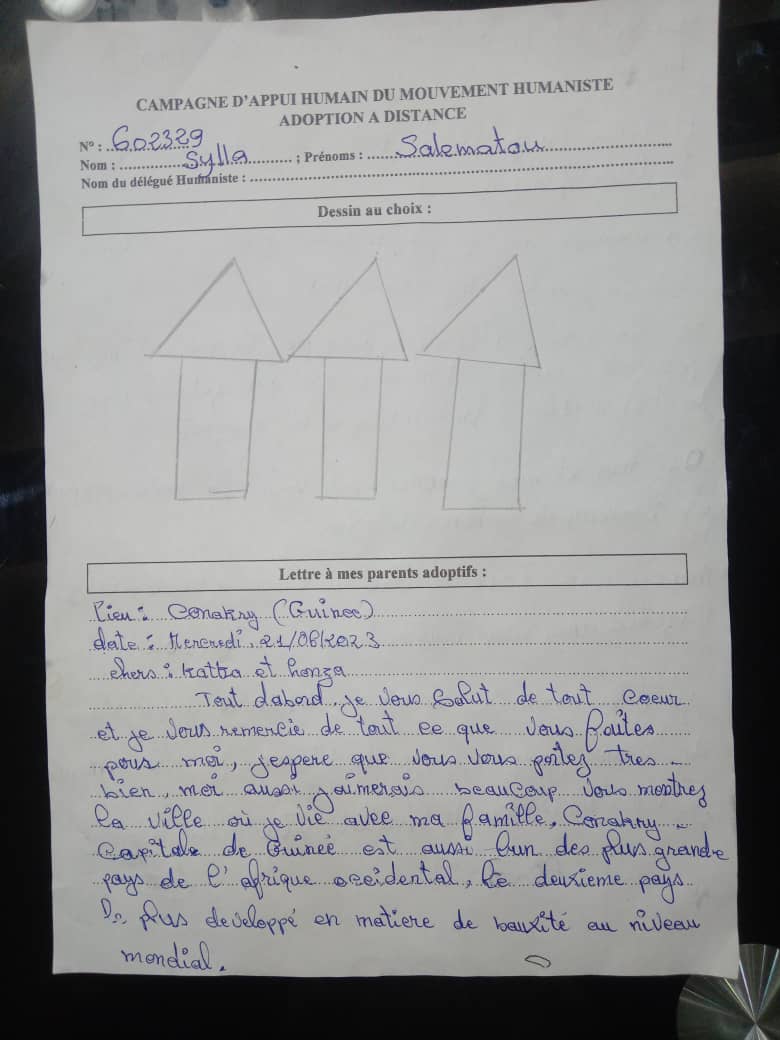 CAMPAGNE D'APPUI HUMAIN DU MOUVEMENT HUMANISTE
ADOPTION A DISTANCE
N° : 602329
Nom : Sylla ; Prénoms : Salematou
Nom du délégué Humaniste :
Dessin au choix :
Lettre à mes parents adoptifs :
Lieu : Conakry (Guinee)
date : Mercredi, 21/06/2023
chers : Katka et honza
Tout d'abord, je vous salut de tout coeur
et je vous remercie de tout ce que vous faites
pour moi, j'espere que vous vous portez tres
bien, moi aussi j'aimerais beaucoup vous montrez
la ville où je vie avec ma famille, Conakry
Capitale de Guineé est aussi l'un des plus grande
pays de l'afrique occidental, le deuxieme pays
plus developpé en matiere de bauxité au niveau
mondial.